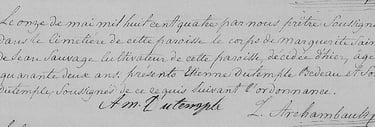 Le onze de mai mil huit cent quatre par nous prêtre Soussigné
dans le Cemetière de cette paroisse le corps de marguerite
de Jean Sauvage Cultivateur de cette paroisse, décédée d'hier, agée
quarante deux ans. presents Etienne dutemple Bedeau et
dutemple Soussignés de ce requis suivant l'ordonnance.
A m. Dutemple L. Archambault